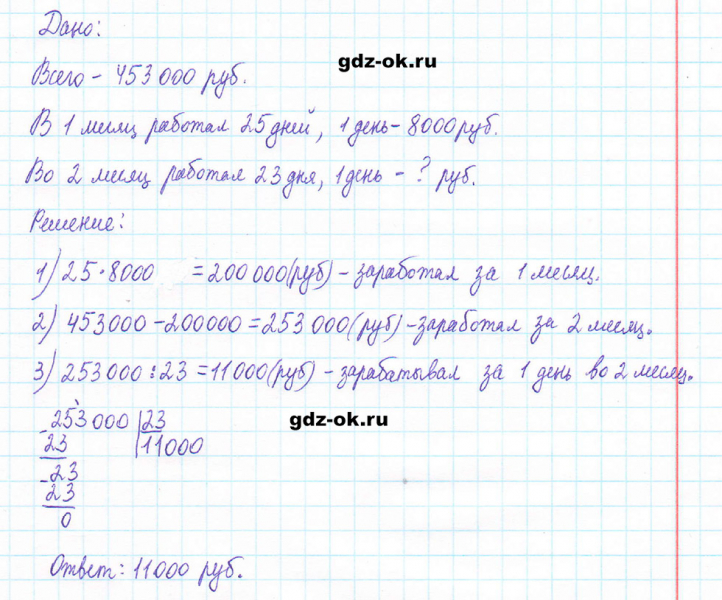 Дано:
gdz-ok.ru
Всего - 453 000 руб.
В 1 месяц работал 25 дней, 1 день - 8000 руб.
Во 2 месяц работал 23 дня, 1 день - ? руб.
Решение:
1) 25 · 8000 = 200 000 (руб) - заработал за 1 месяц.
2) 453000 - 200000 = 253 000 (руб) - заработал за 2 месяц.
3) 253 000 : 23 = 11000 (руб) - зарабатывал за 1 день во 2 месяц.
- 253 000 | 23
23 | 11000
gdz-ok.ru
- 23
23
0
Ответ: 11000 руб.